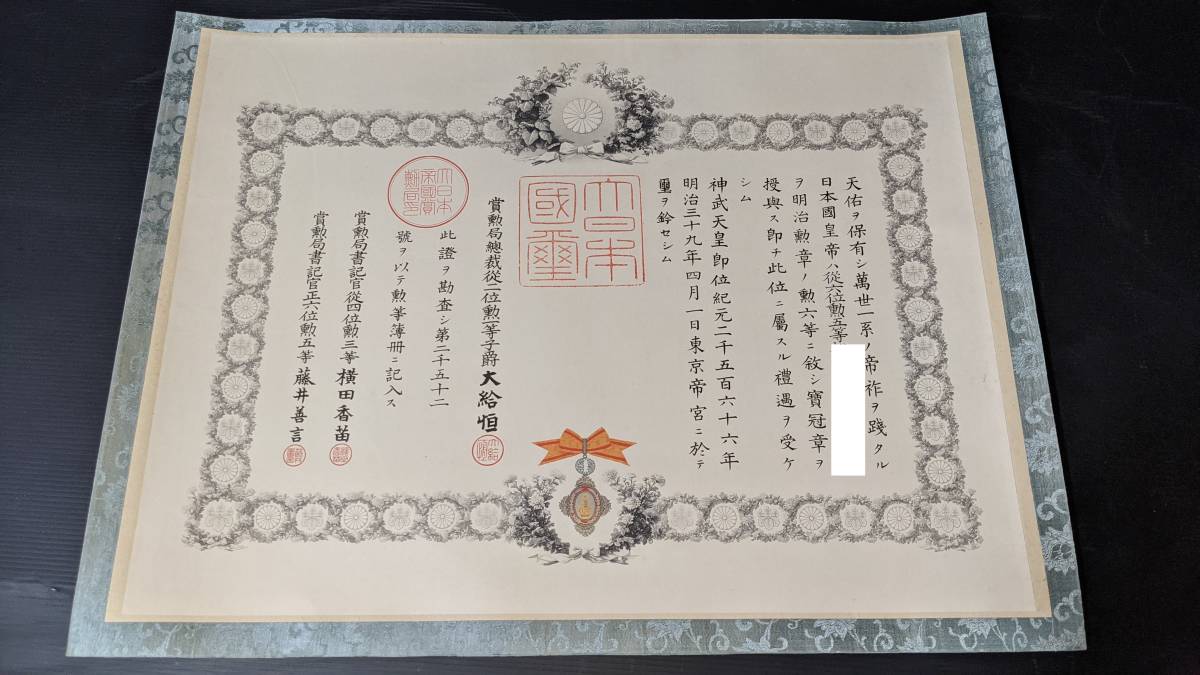 天佑ヲ保有シ萬世一系ノ帝祚ヲ踐タル
日本國皇帝ハ從六位勲五等
ヲ明治勲章ノ勲六等ニ敘シ寶冠章ヲ
授與ス即チ此位ニ屬スル禮遇ヲ受ケ
シム
神武天皇即位紀元二千五百六十六年
明治三十九年四月一日東京帝宮ニ於テ
璽ヲ鈐セシム
大日本
國璽
賞勲局總裁從二位勲一等子爵大給恒
大日本
帝國賞
勲局印
此證ヲ勘査シ第二千五十二
號ヲ以テ勲等簿冊ニ記入ス
賞勲局書記官從四位勲三等橫田香苗
賞勲局書記官正六位勲五等藤井善言